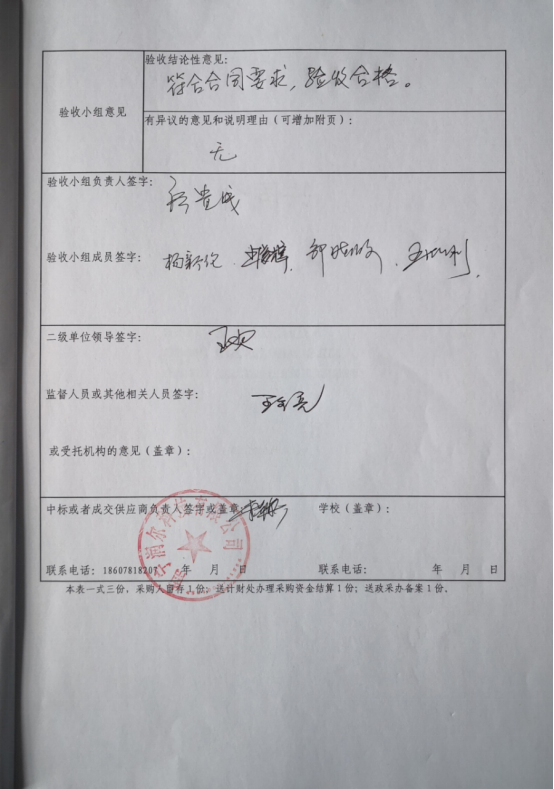 验收结论性意见:
符合合同要求，验收合格。
验收小组意见
有异议的意见和说明理由(可增加附页):
无
验收小组负责人签字:
验收小组成员签字:
二级单位领导签字:
监督人员或其他相关人员签字:
或受托机构的意见(盖章):
中标或者成交供应商负责人签字或盖章: 学校(盖章):
联系电话: 18607818207 年 月 日 联系电话: 年 月 日
本表一式三份，采购人留存1份；送计财处办理采购资金结算1份；送政采办备案1份。